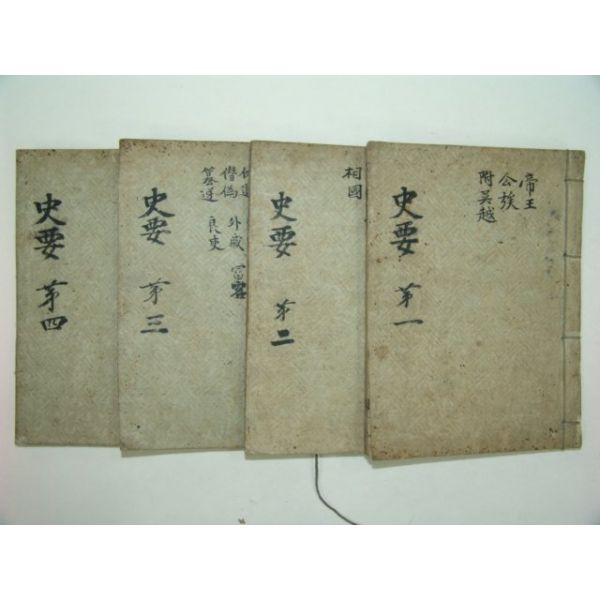 帝王
公族
附吳越
史要 第一
相國
史要 第二
僭僞 外戚 宦
簒逆 良吏
史要 第三
史要 第四